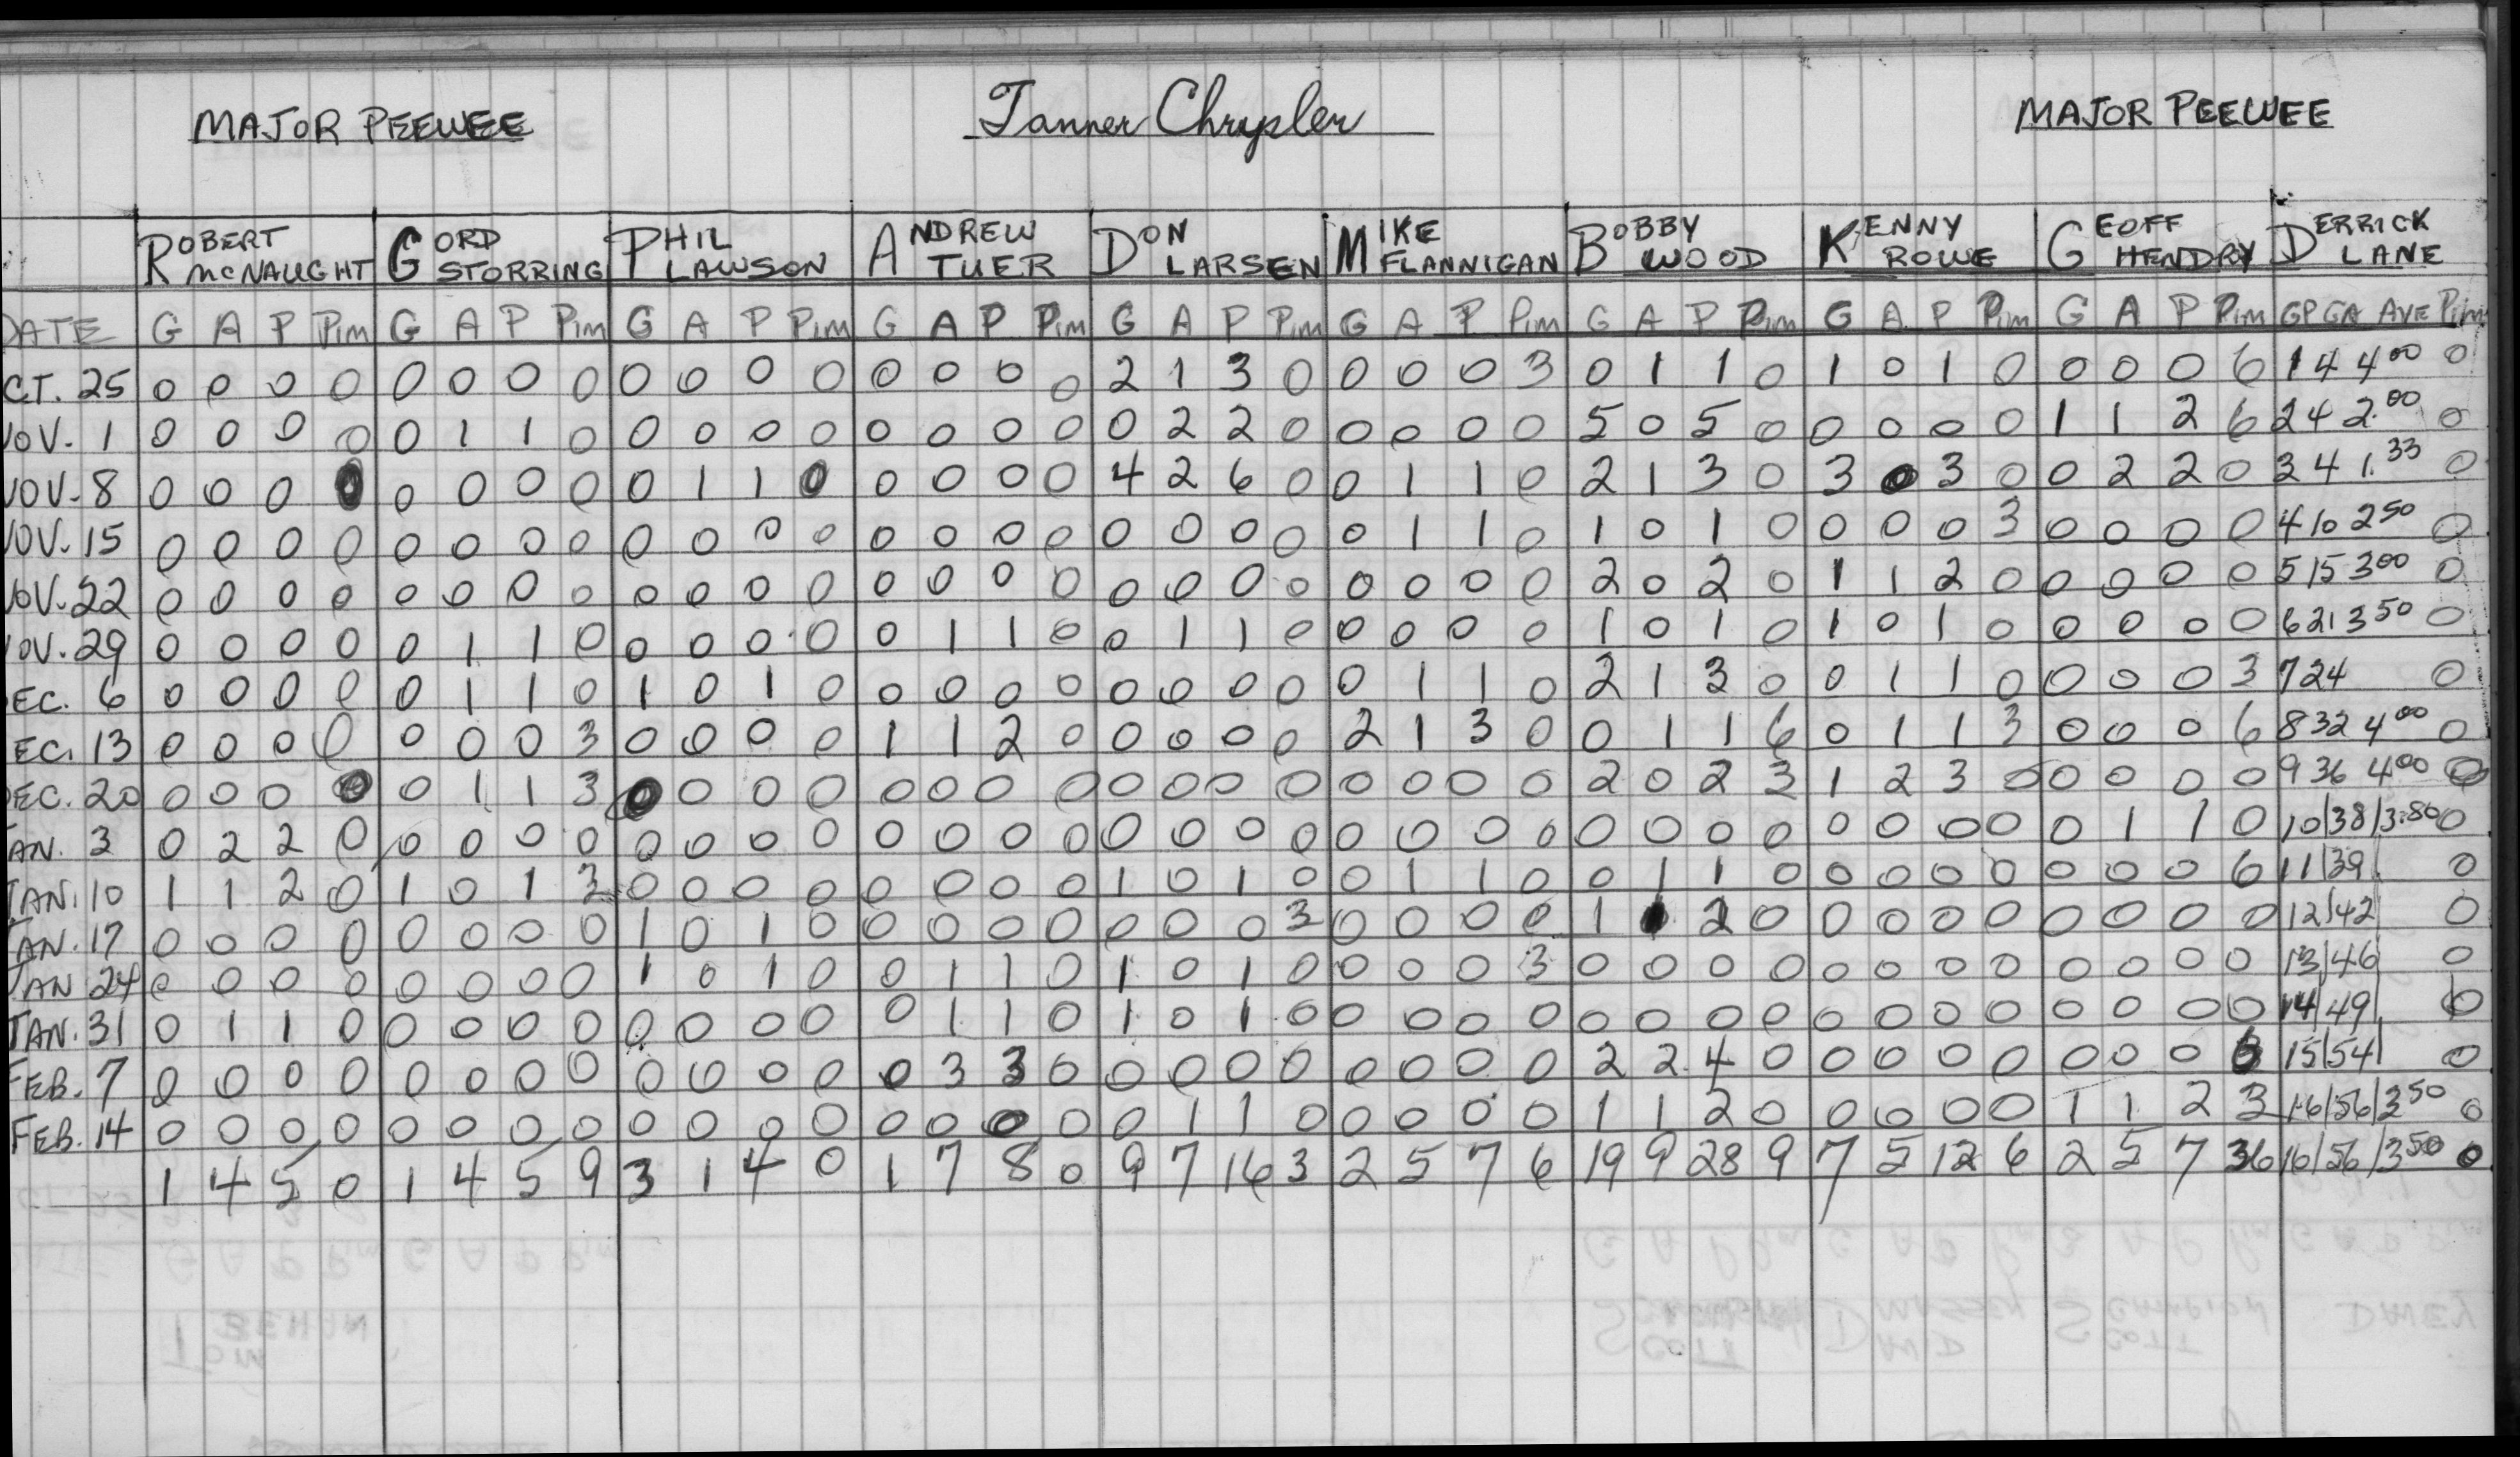 MAJOR PEEWEE Tanner Chrysler MAJOR PEEWEE
ROBERT MCNAUGHT GORD STORRING PHIL LAWSON ANDREW TUER DON LARSEN MIKE FLANNIGAN BOBBY WOOD KENNY ROWE GEOFF HENDRY DERRICK LANE
DATE G A P Pim G A P Pim G A P Pim G A P Pim G A P Pim G A P Pim G A P Pim G A P Pim G A P Pim GP GA AVE Pim
CT. 25 0 0 0 0 0 0 0 0 0 0 0 0 0 0 0 0 2 1 3 0 0 0 0 3 0 1 1 0 1 0 1 0 0 0 0 6 1 4 4.00 0
NOV. 1 0 0 0 0 0 1 1 0 0 0 0 0 0 0 0 0 0 2 2 0 0 0 0 0 5 0 5 0 0 0 0 0 1 1 2 6 2 4 2.00 0
NOV. 8 0 0 0 0 0 0 0 0 0 1 1 0 0 0 0 0 4 2 6 0 0 1 1 0 2 1 3 0 3 0 3 0 0 2 2 0 3 4 1.33 0
NOV. 15 0 0 0 0 0 0 0 0 0 0 0 0 0 0 0 0 0 0 0 0 0 1 1 0 1 0 1 0 0 0 0 3 0 0 0 0 4 10 2 50 0
NOV. 22 0 0 0 0 0 0 0 0 0 0 0 0 0 0 0 0 0 0 0 0 0 0 0 0 2 0 2 0 1 1 2 0 0 0 0 0 5 15 3 00 0
NOV. 29 0 0 0 0 0 1 1 0 0 0 0 0 0 1 1 0 0 1 1 0 0 0 0 0 1 0 1 0 1 0 1 0 0 0 0 0 6 21 3 50 0
EC. 6 0 0 0 0 0 1 1 0 1 0 1 0 0 0 0 0 0 0 0 0 0 1 1 0 2 1 3 0 0 1 1 0 0 0 0 3 7 24 0
EC. 13 0 0 0 0 0 0 0 3 0 0 0 0 1 1 2 0 0 0 0 0 2 1 3 0 0 1 1 6 0 1 1 3 0 0 0 6 8 32 4 00 0
EC. 20 0 0 0 0 0 1 1 3 0 0 0 0 0 0 0 0 0 0 0 0 0 0 0 0 2 0 2 3 1 2 3 0 0 0 0 0 9 36 4 00 0
AN. 3 0 2 2 0 0 0 0 0 0 0 0 0 0 0 0 0 0 0 0 0 0 0 0 0 0 0 0 0 0 0 0 0 0 1 1 0 10 38 3.80 0
JAN. 10 1 1 2 0 1 0 1 3 0 0 0 0 0 0 0 0 1 0 1 0 0 1 1 0 0 1 1 0 0 0 0 0 0 0 0 6 11 39 0
JAN. 17 0 0 0 0 0 0 0 0 1 0 1 0 0 0 0 0 0 0 0 3 0 0 0 0 1 0 0 0 0 0 0 0 0 0 12 42 0
JAN 24 0 0 0 0 0 0 0 0 1 0 1 0 0 1 1 0 1 0 1 0 0 0 0 3 0 0 0 0 0 0 0 0 0 0 0 0 13 46 0
JAN. 31 0 1 1 0 0 0 0 0 0 0 0 0 0 1 1 0 1 0 1 0 0 0 0 0 0 0 0 0 0 0 0 0 0 0 0 0 14 49 0
FEB. 7 0 0 0 0 0 0 0 0 0 0 0 0 0 3 3 0 0 0 0 0 0 0 0 0 2 2 4 0 0 0 0 0 0 0 0 15 54 0
FEB. 14 0 0 0 0 0 0 0 0 0 0 0 0 0 0 0 0 0 1 1 0 0 0 0 0 1 1 2 0 0 0 0 0 1 1 2 3 16 56 3 50 0
1 4 5 0 1 4 5 9 3 1 4 0 1 7 8 0 9 7 16 3 2 5 7 6 19 9 28 9 7 5 12 6 2 5 7 36 16 56 3 50 0